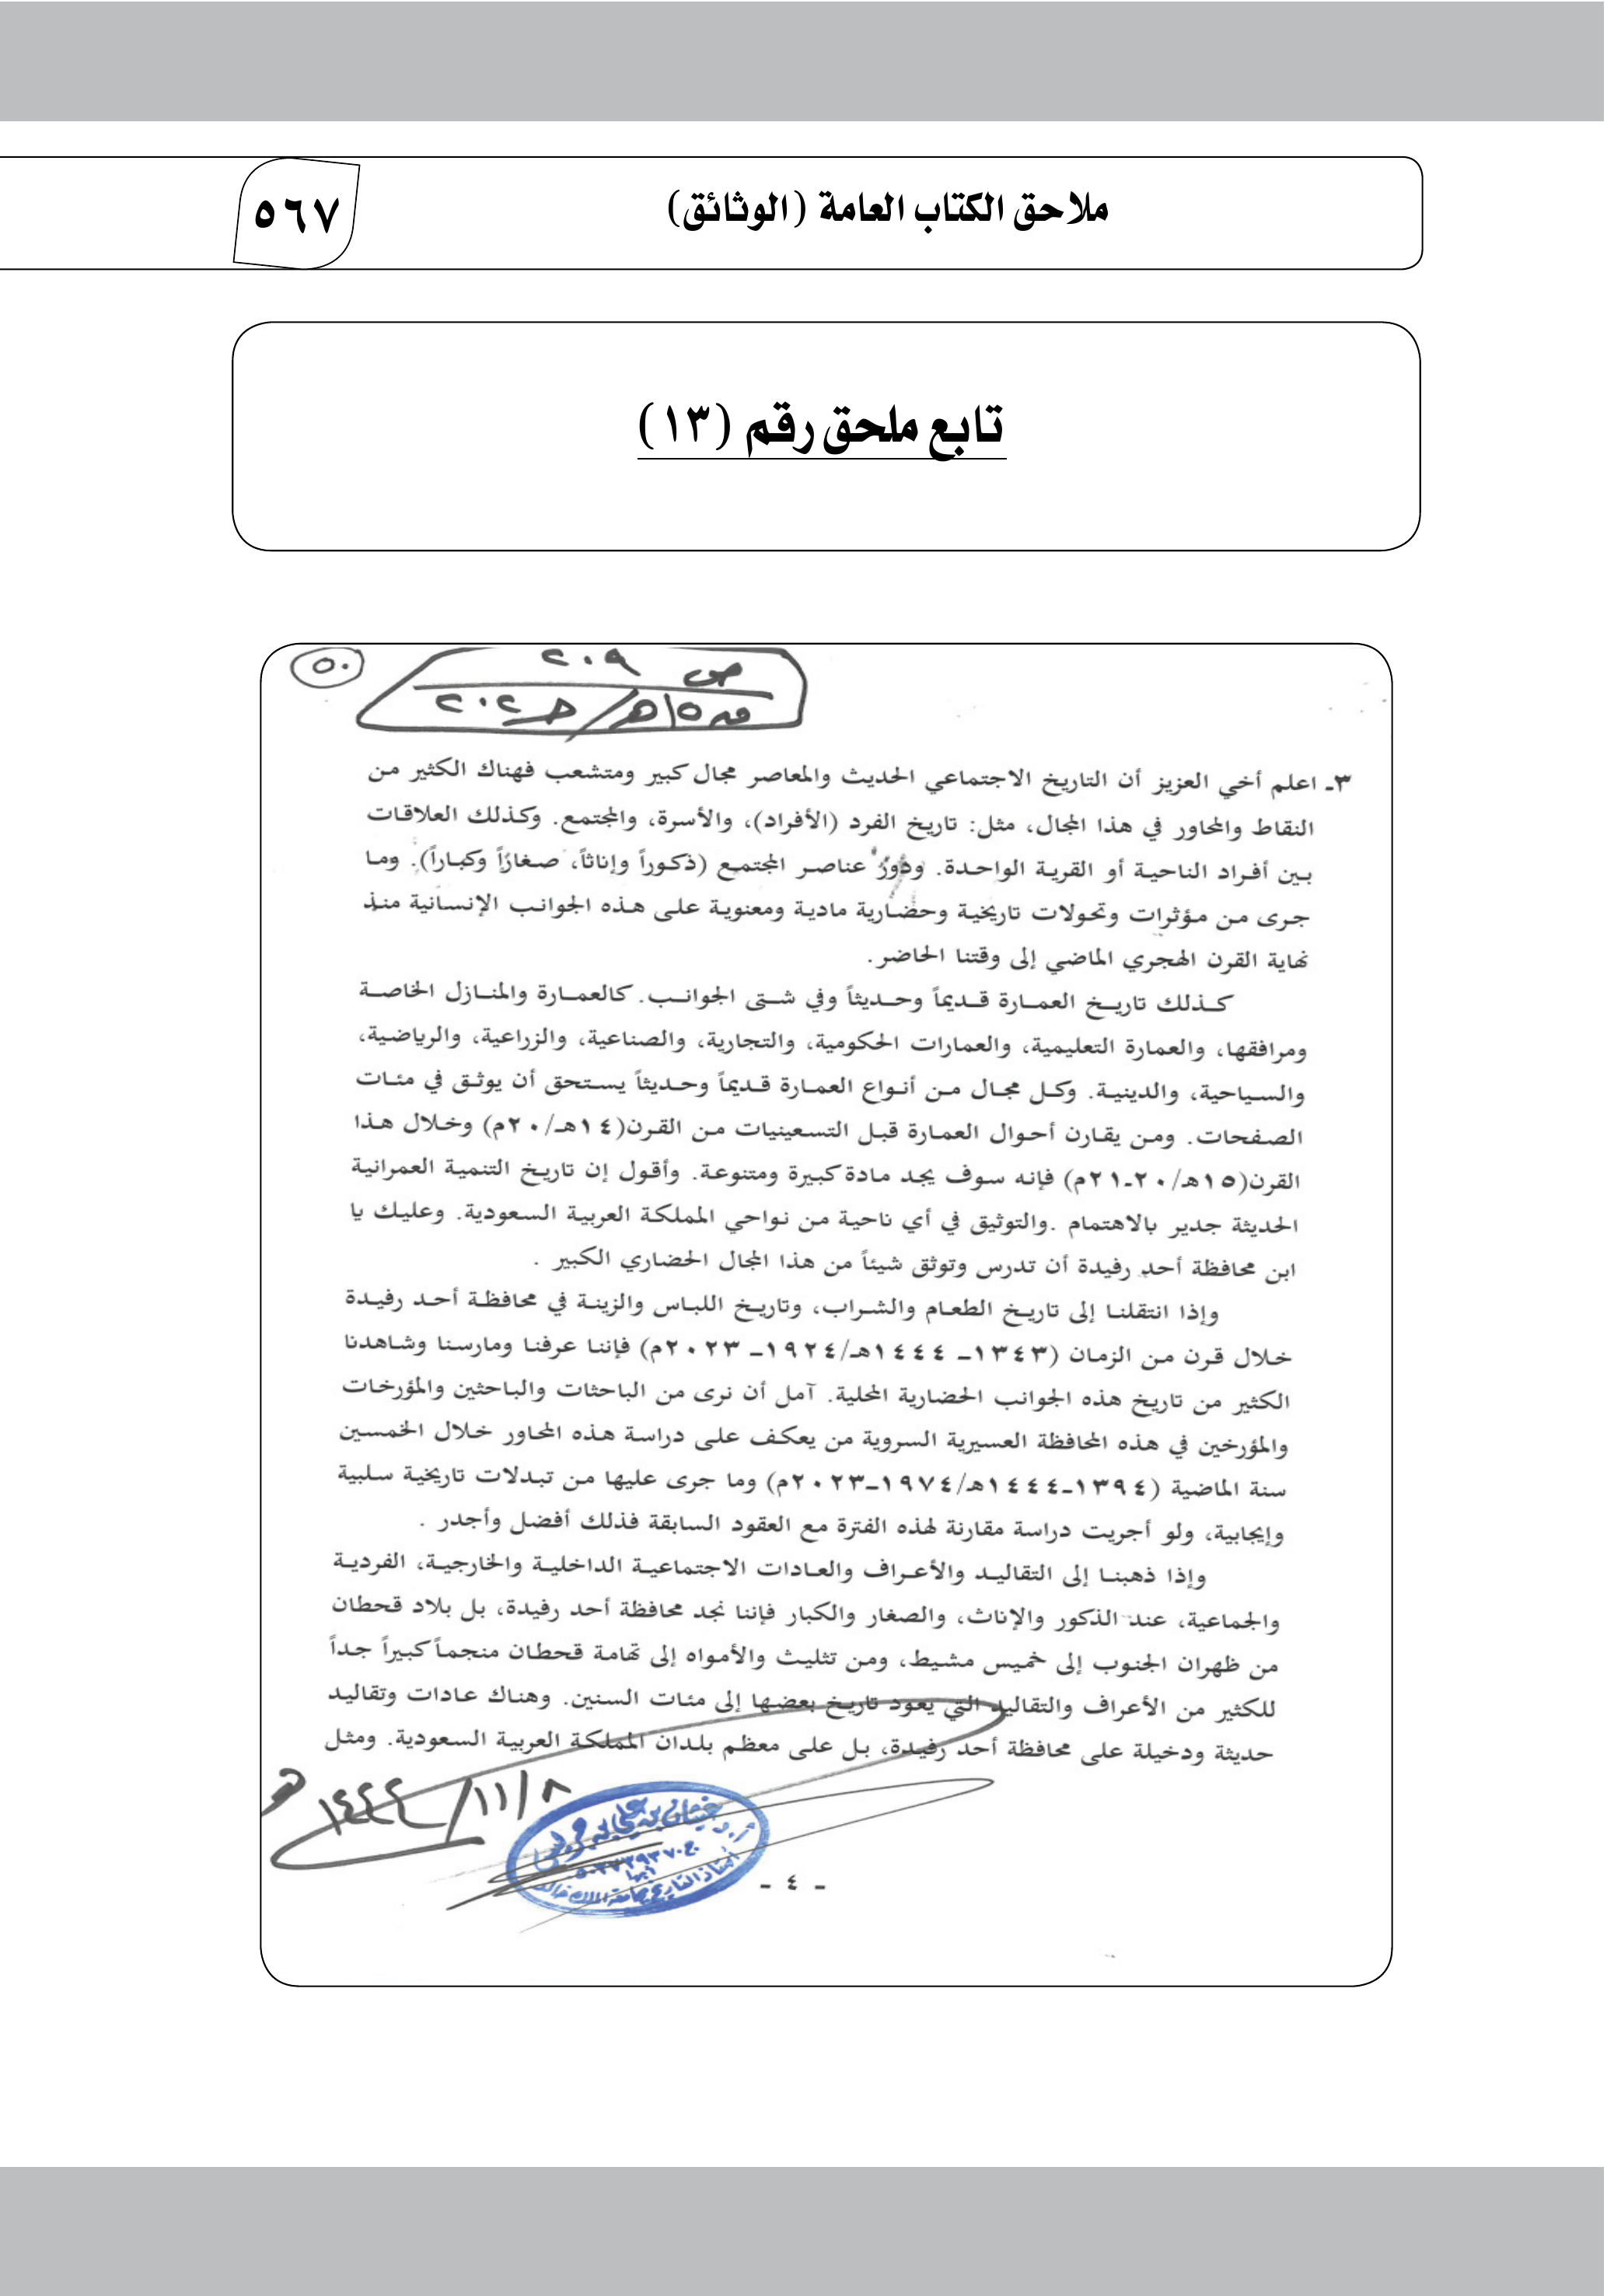 ملاحق الكتاب العامة (الوثائق)
٥٦٧
تابع ملحق رقم (١٣)
٥٠
ص ٢٠٩
ق١٥هـ/ جـ٢٠٢
٣ـ اعلم أخي العزيز أن التاريخ الاجتماعي الحديث والمعاصر مجال كبير ومتشعب فهناك الكثير من
النقاط والمحاور في هذا المجال، مثل: تاريخ الفرد (الأفراد)، والأسرة، والمجتمع. وكذلك العلاقات
بين أفراد الناحية أو القرية الواحدة. ودورُ عناصر المجتمع (ذكوراً وإناثاً، صغارًاً وكباراً). وما
جرى من مؤثرات وتحولات تاريخية وحضارية مادية ومعنوية على هذه الجوانب الإنسانية منذ
نهاية القرن الهجري الماضي إلى وقتنا الحاضر.
كذلك تاريخ العمارة قديماً وحديثاً وفي شتى الجوانب. كالعمارة والمنازل الخاصة
ومرافقها، والعمارة التعليمية، والعمارات الحكومية، والتجارية، والصناعية، والزراعية، والرياضية،
والسياحية، والدينية. وكل مجال من أنواع العمارة قديماً وحديثاً يستحق أن يوثق في مئات
الصفحات. ومن يقارن أحوال العمارة قبل التسعينيات من القرن(١٤هـ/٢٠م) وخلال هذا
القرن(١٥هـ/٢٠ـ٢١م) فإنه سوف يجد مادة كبيرة ومتنوعة. وأقول إن تاريخ التنمية العمرانية
الحديثة جدير بالاهتمام .والتوثيق في أي ناحية من نواحي المملكة العربية السعودية. وعليك يا
ابن محافظة أحد رفيدة أن تدرس وتوثق شيئاً من هذا المجال الحضاري الكبير .
وإذا انتقلنا إلى تاريخ الطعام والشراب، وتاريخ اللباس والزينة في محافظة أحد رفيدة
خلال قرن من الزمان (١٣٤٣ـ ١٤٤٤هـ/١٩٢٤ـ ٢٠٢٣م) فإننا عرفنا ومارسنا وشاهدنا
الكثير من تاريخ هذه الجوانب الحضارية المحلية. آمل أن نرى من الباحثات والباحثين والمؤرخات
والمؤرخين في هذه المحافظة العسيرية السروية من يعكف على دراسة هذه المحاور خلال الخمسين
سنة الماضية (١٣٩٤ـ١٤٤٤هـ/١٩٧٤ـ٢٠٢٣م) وما جرى عليها من تبدلات تاريخية سلبية
وإيجابية، ولو أجريت دراسة مقارنة لهذه الفترة مع العقود السابقة فذلك أفضل وأجدر .
وإذا ذهبنا إلى التقاليد والأعراف والعادات الاجتماعية الداخلية والخارجية، الفردية
والجماعية، عند الذكور والإناث، والصغار والكبار فإننا نجد محافظة أحد رفيدة، بل بلاد قحطان
من ظهران الجنوب إلى خميس مشيط، ومن تثليث والأمواه إلى تهامة قحطان منجماً كبيراً جداً
للكثير من الأعراف والتقاليد التي يعود تاريخ بعضها إلى مئات السنين. وهناك عادات وتقاليد
حديثة ودخيلة على محافظة أحد رفيدة، بل على معظم بلدان المملكة العربية السعودية. ومثل
١٤٤٤/١١/٨هـ
أ.د. غيثان بن علي بن جريس
أبها
أستاذ التاريخ بجامعة الملك خالد
ـ ٤ ـ